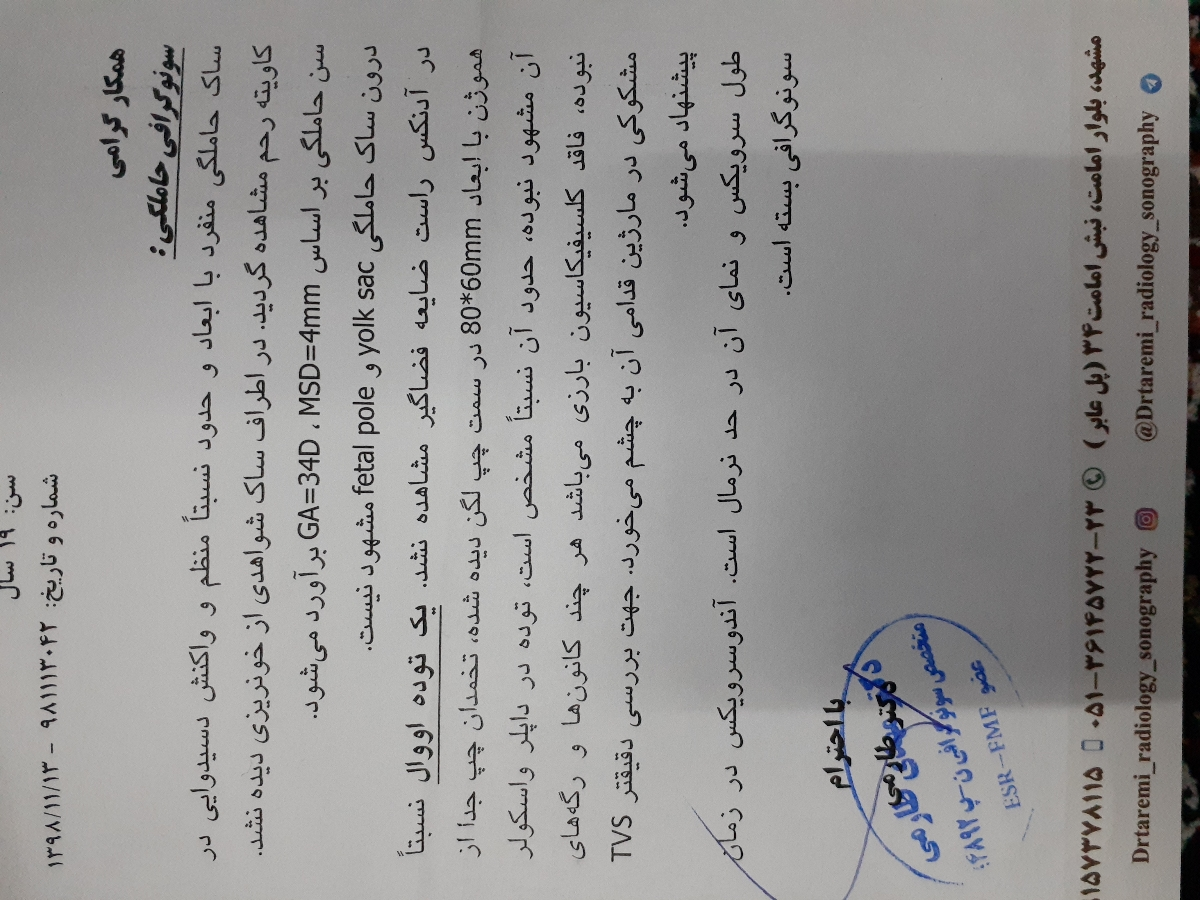 سن: ۱۹ سال
شماره و تاریخ: ۹۸۱۱۱۳۰۴۲ - ۱۳۹۸/۱۱/۱۳
همکار گرامی
سونوگرافی حاملگی:
ساک حاملگی منفرد با ابعاد و حدود نسبتاً منظم و واکنش دسیدوایی در
کاویته رحم مشاهده گردید. در اطراف ساک شواهدی از خونریزی دیده نشد.
سن حاملگی بر اساس GA=34D ، MSD=4mm برآورد می‌شود.
درون ساک حاملگی yolk sac و fetal pole مشهود نیست.
در آدنکس راست ضایعه فضاگیر مشاهده نشد. یک توده اووال نسبتاً
هموژن با ابعاد 80*60mm در سمت چپ لگن دیده شده، تخمدان چپ جدا از
آن مشهود نبوده، حدود آن نسبتاً مشخص است، توده در داپلر واسکولر
نبوده، فاقد کلسیفیکاسیون بارزی می‌باشد هر چند کانون‌ها و رگه‌های
مشکوکی در مارژین قدامی آن به چشم می‌خورد. جهت بررسی دقیقتر TVS
پیشنهاد می‌شود.
طول سرویکس و نمای آن در حد نرمال است. آندوسرویکس در زمان
سونوگرافی بسته است.
با احترام
دکتر طارمی
متخصص سونوگرافی
عضو ESR-FMF
مشهد، بلوار امامت، نبش امامت ۳۴ (پل عابر) ۰۵۱-۳۶۱۴۵۷۲۲-۲۳ ۱۵۷۳۷۸۱۱۵
Drtaremi_radiology_sonography @Drtaremi_radiology_sonography